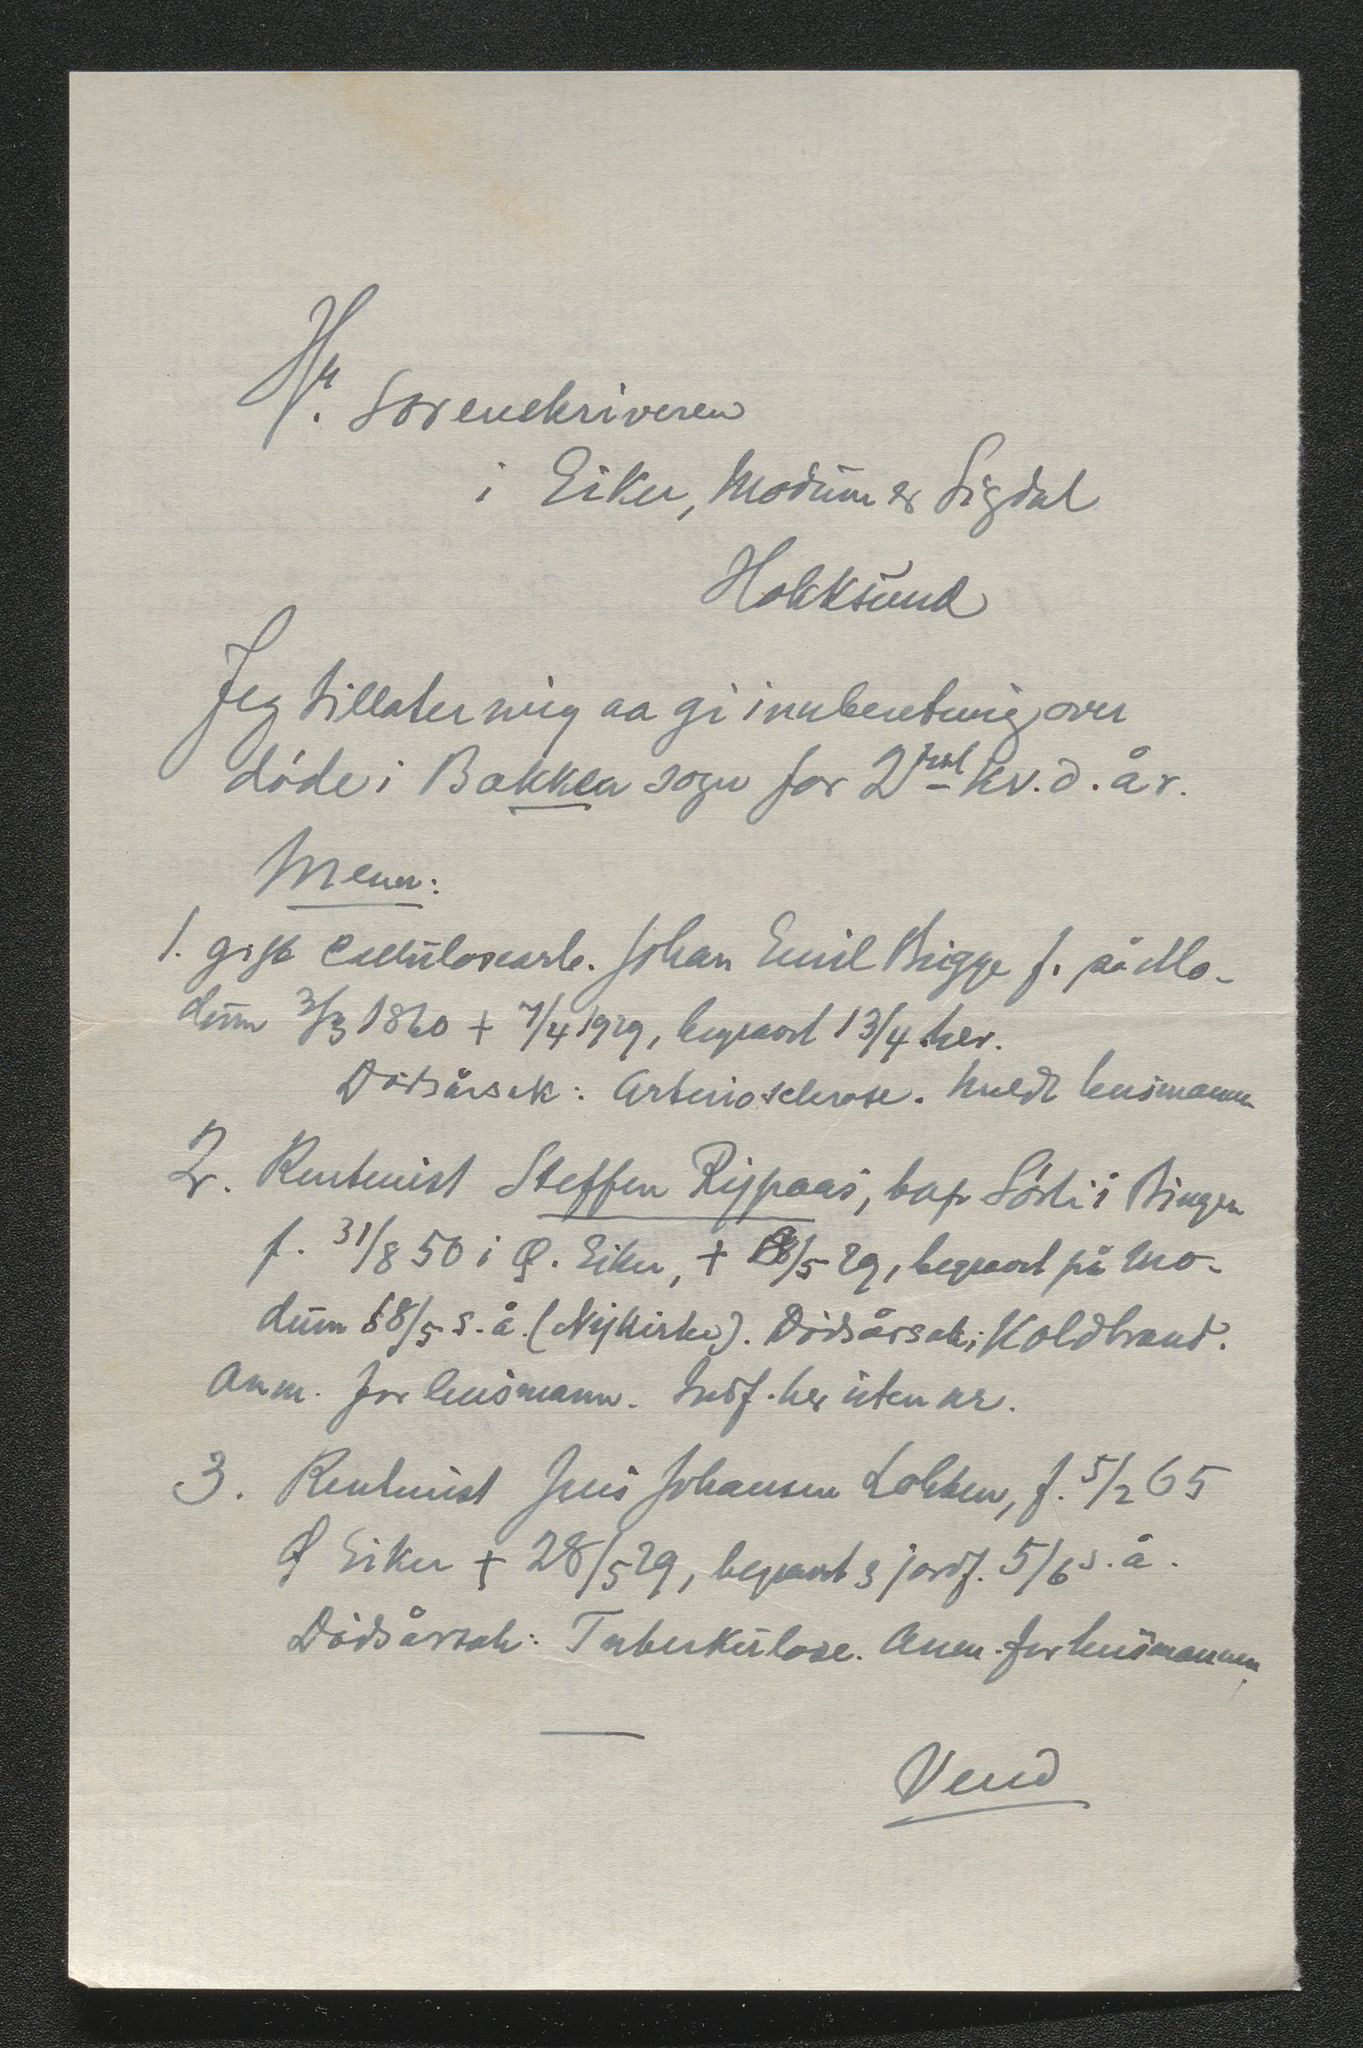 Hr. Sorenskriveren
i Eiker, Modum & Sigdal
Hokksund
Jeg tillater mig aa gi innberetning over
døde i Bakken sogn for 2net kv. d. år.
Menn:
1. gift Cellulosearb. Johan Emil Brigge f. på Mo-
dum 3/3 1860 + 7/4 1929, begravet 13/4 her.
Dødsårsak: Arteriosclerose. Meldt lensmann
2. Rentenist Steffen Rypaas, bop Sørli i Bingen
f. 31/8 50 i Ø. Eiker, + /5 29, begravet på Mo-
dum 18/5 s. å. (Nykirke). Dødsårsak: Koldbrand.
Anm. for lensmann. Indf. her uten nr.
3. Rentenist Jens Johansen Lokken, f. 5/2 65
Ø Eiker + 28/5 29, begravet & jordf. 5/6 s. å.
Dødsårsak: Tuberkulose. Anm. for lensmannen.
Vend